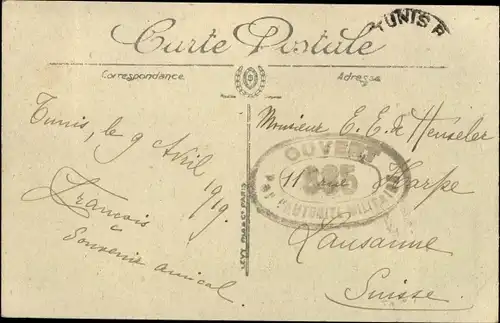 Carte Postale
TUNIS R
Correspondance
Adresse
Tunis, le 9 Avril
1919.
François
Souvenir amical
LEVY FILS & Cie PARIS
Monsieur E. E. de Henseler
OUVERT
PAR L'AUTORITÉ MILITAIRE
11 rue Harpe
Lausanne
Suisse.